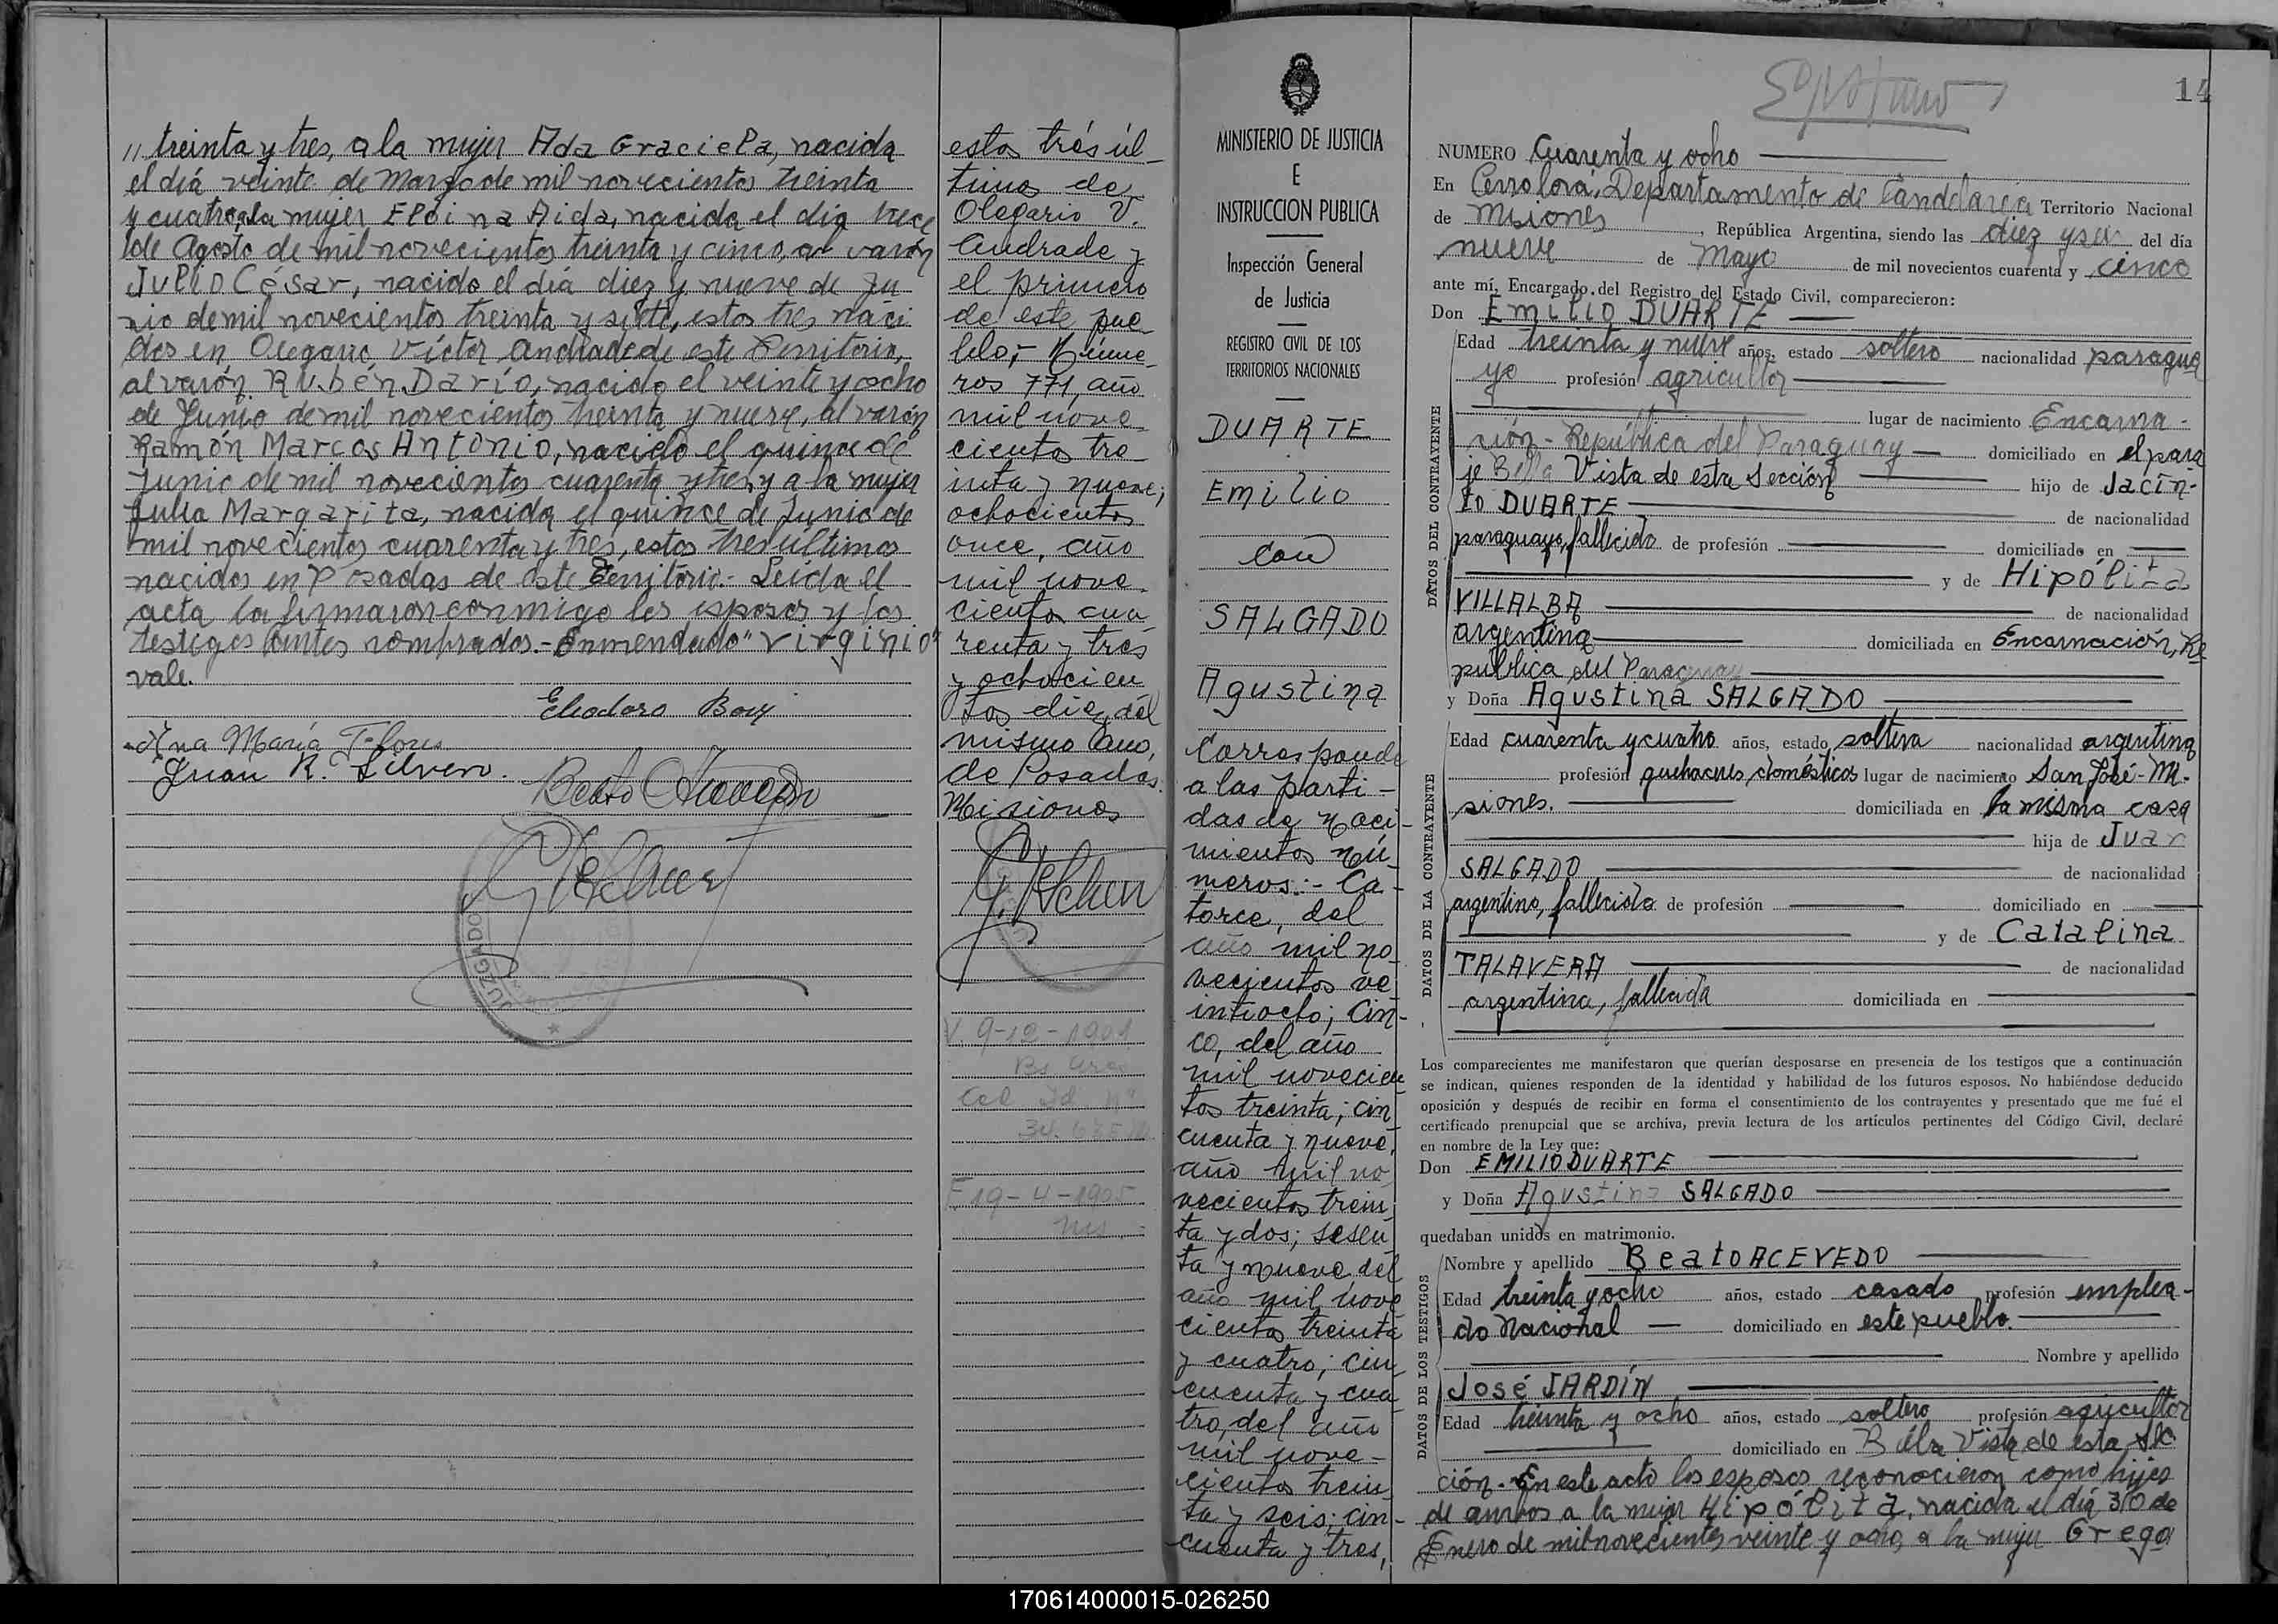 // treinta y tres, a la mujer Ada Graciela, nacida
el día veinte de Marzo de mil novecientos treinta
y cuatro, a la mujer Eloina Aida, nacida el día trece
de Agosto de mil novecientos treinta y cinco, al varón
Julio César, nacido el día diez y nueve de Ju
nio de mil novecientos treinta y siete, estos tres naci
dos en Olegario Víctor Andrade de este Territorio,
al varón Rubén Darío, nacido el veinte y ocho
de Junio de mil novecientos treinta y nueve, al varón
Ramón Marcos Antonio, nacido el quince de
Junio de mil novecientos cuarenta y tres y a la mujer
Julia Margarita, nacida el quince de Junio de
mil novecientos cuarenta y tres, estos tres últimos
nacidos en Posadas de este Territorio.- Leída el
acta la firmaron conmigo los esposos y los
testigos antes nombrados.- Enmendado "Virginio"
vale.
Eleodoro
Ana María Flores
Juan R. Silvero.
JUZGADO
estos trés úl-
timos de
Olegario V.
Andrade y
el primero
de este pue-
blo;- Núme-
ros 771, año
mil nove-
cientos tre-
inta y nueve;
ochocientos
once, año
mil nove-
cientos cua-
renta y trés
y ochocien
tos diez, del
mismo año,
de Posadas.
Misiones
V. 9-12-1901
Bs. Ares
F 19-4-1905
MINISTERIO DE JUSTICIA
E
INSTRUCCION PUBLICA
Inspección General
de Justicia
REGISTRO CIVIL DE LOS
TERRITORIOS NACIONALES
DUARTE
Emilio
con
SALGADO
Agustina
Corresponde
a las parti-
das de naci-
mientos nú-
meros:- Ca-
torce, del
año mil no-
vecientos ve
intiocho; Cin-
co, del año
mil novecien
tos treinta; cin
cuenta y nueve,
año mil no-
vecientos trein-
ta y dos; sesen
ta y nueve, del
año mil nove
cientos treinta
y cuatro; cin
cuenta y cua
tro, del año
mil nove-
cientos trein-
ta y seis; cin-
cuenta y tres,
14
NUMERO Cuarenta y ocho
En Cerro Corá, Departamento de Candelaria Territorio Nacional
de Misiones, República Argentina, siendo las diez y seis del día
nueve de Mayo de mil novecientos cuarenta y cinco
ante mí, Encargado del Registro del Estado Civil, comparecieron:
Don Emilio DUARTE
DATOS DEL CONTRAYENTE
Edad treinta y nueve años, estado soltero nacionalidad paragua
yo profesión agricultor
lugar de nacimiento Encarna-
ción - República del Paraguay domiciliado en el para
je Bella Vista de esta Sección hijo de Jacin-
to DUARTE de nacionalidad
paraguayo, fallecido de profesión domiciliado en
y de Hipólita
VILLALBA de nacionalidad
argentina domiciliada en Encarnación, Re
pública del Paraguay
y Doña Agustina SALGADO
DATOS DE LA CONTRAYENTE
Edad cuarenta y cuatro años, estado soltera nacionalidad argentina
profesión quehaceres domésticos lugar de nacimiento San José - Mi-
siones. domiciliada en la misma casa
hija de Juan
SALGADO de nacionalidad
argentino, fallecido de profesión domiciliado en
y de Catalina
TALAVERA de nacionalidad
argentina, fallecida domiciliada en
Los comparecientes me manifestaron que querían desposarse en presencia de los testigos que a continuación
se indican, quienes responden de la identidad y habilidad de los futuros esposos. No habiéndose deducido
oposición y después de recibir en forma el consentimiento de los contrayentes y presentado que me fué el
certificado prenupcial que se archiva, previa lectura de los artículos pertinentes del Código Civil, declaré
en nombre de la Ley que:
Don EMILIO DUARTE
y Doña Agustina SALGADO
quedaban unidos en matrimonio.
DATOS DE LOS TESTIGOS
Nombre y apellido Beato ACEVEDO
Edad treinta y ocho años, estado casado profesión emplea-
do Nacional domiciliado en este pueblo.
Nombre y apellido
José JARDÍN
Edad treinta y ocho años, estado soltero profesión agricultor
domiciliado en Bella Vista de esta Sec
ción. En este acto los esposos reconocieron como hijos
de ambos a la mujer Hipólita, nacida el día 30 de
Enero de mil novecientos veinte y ocho, a la mujer Grego
170614000015-026250